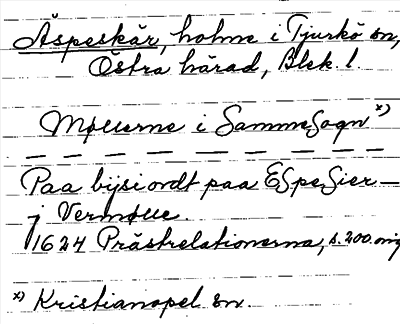 Äspeskär, holme i Tjurkö sn,
Östra härad, Blek. l.
Møllerne i SammeSogn x)
Paa bijsiordt paa ESpeSier —
j Vermølle.
1624 Prästrelationerna, s. 200. orig
x) Kristianopel sn.